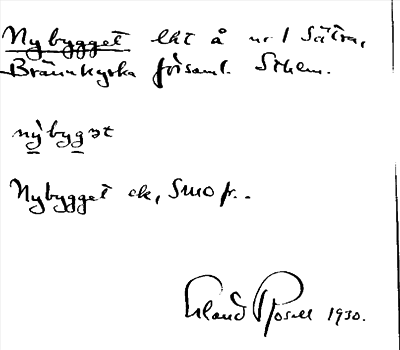 Nybygget lht å nr 1 Sätra,
Brännkyrka församl. Sthlm.
nỳbygət
Nybygget ek, Smo fr..
Erland Rosell 1930.